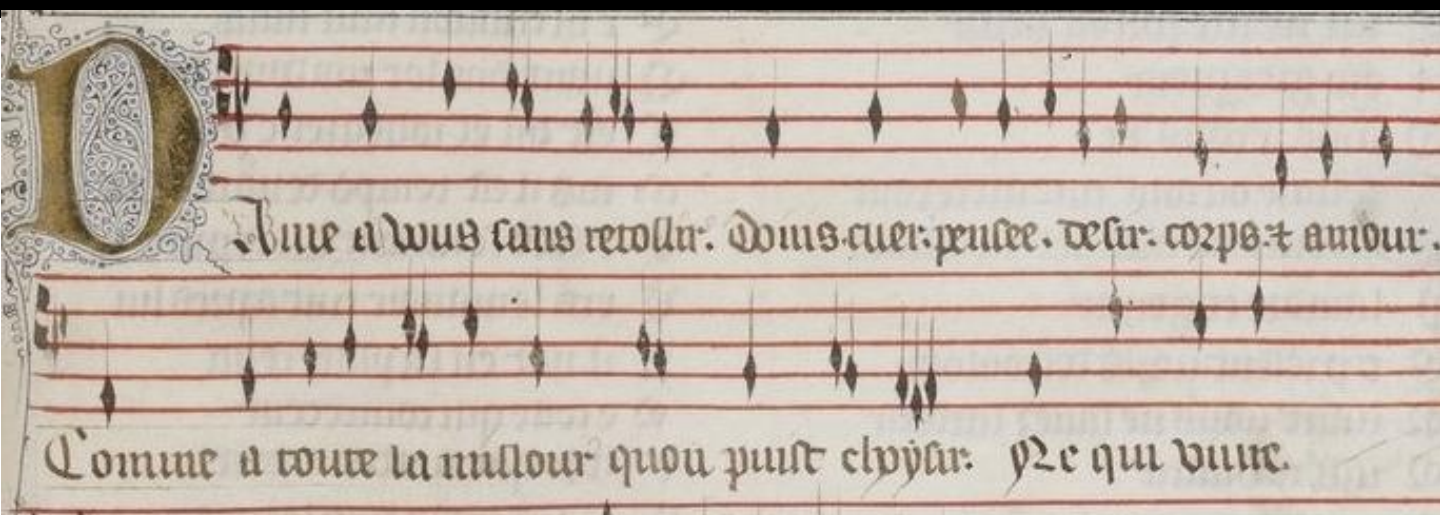 DAme a vous sans retollir. Doins cuer. pensee. desir. corps. ⁊ amour.
Comme a toute la millour quon puist choysir. Ne qui vivre.